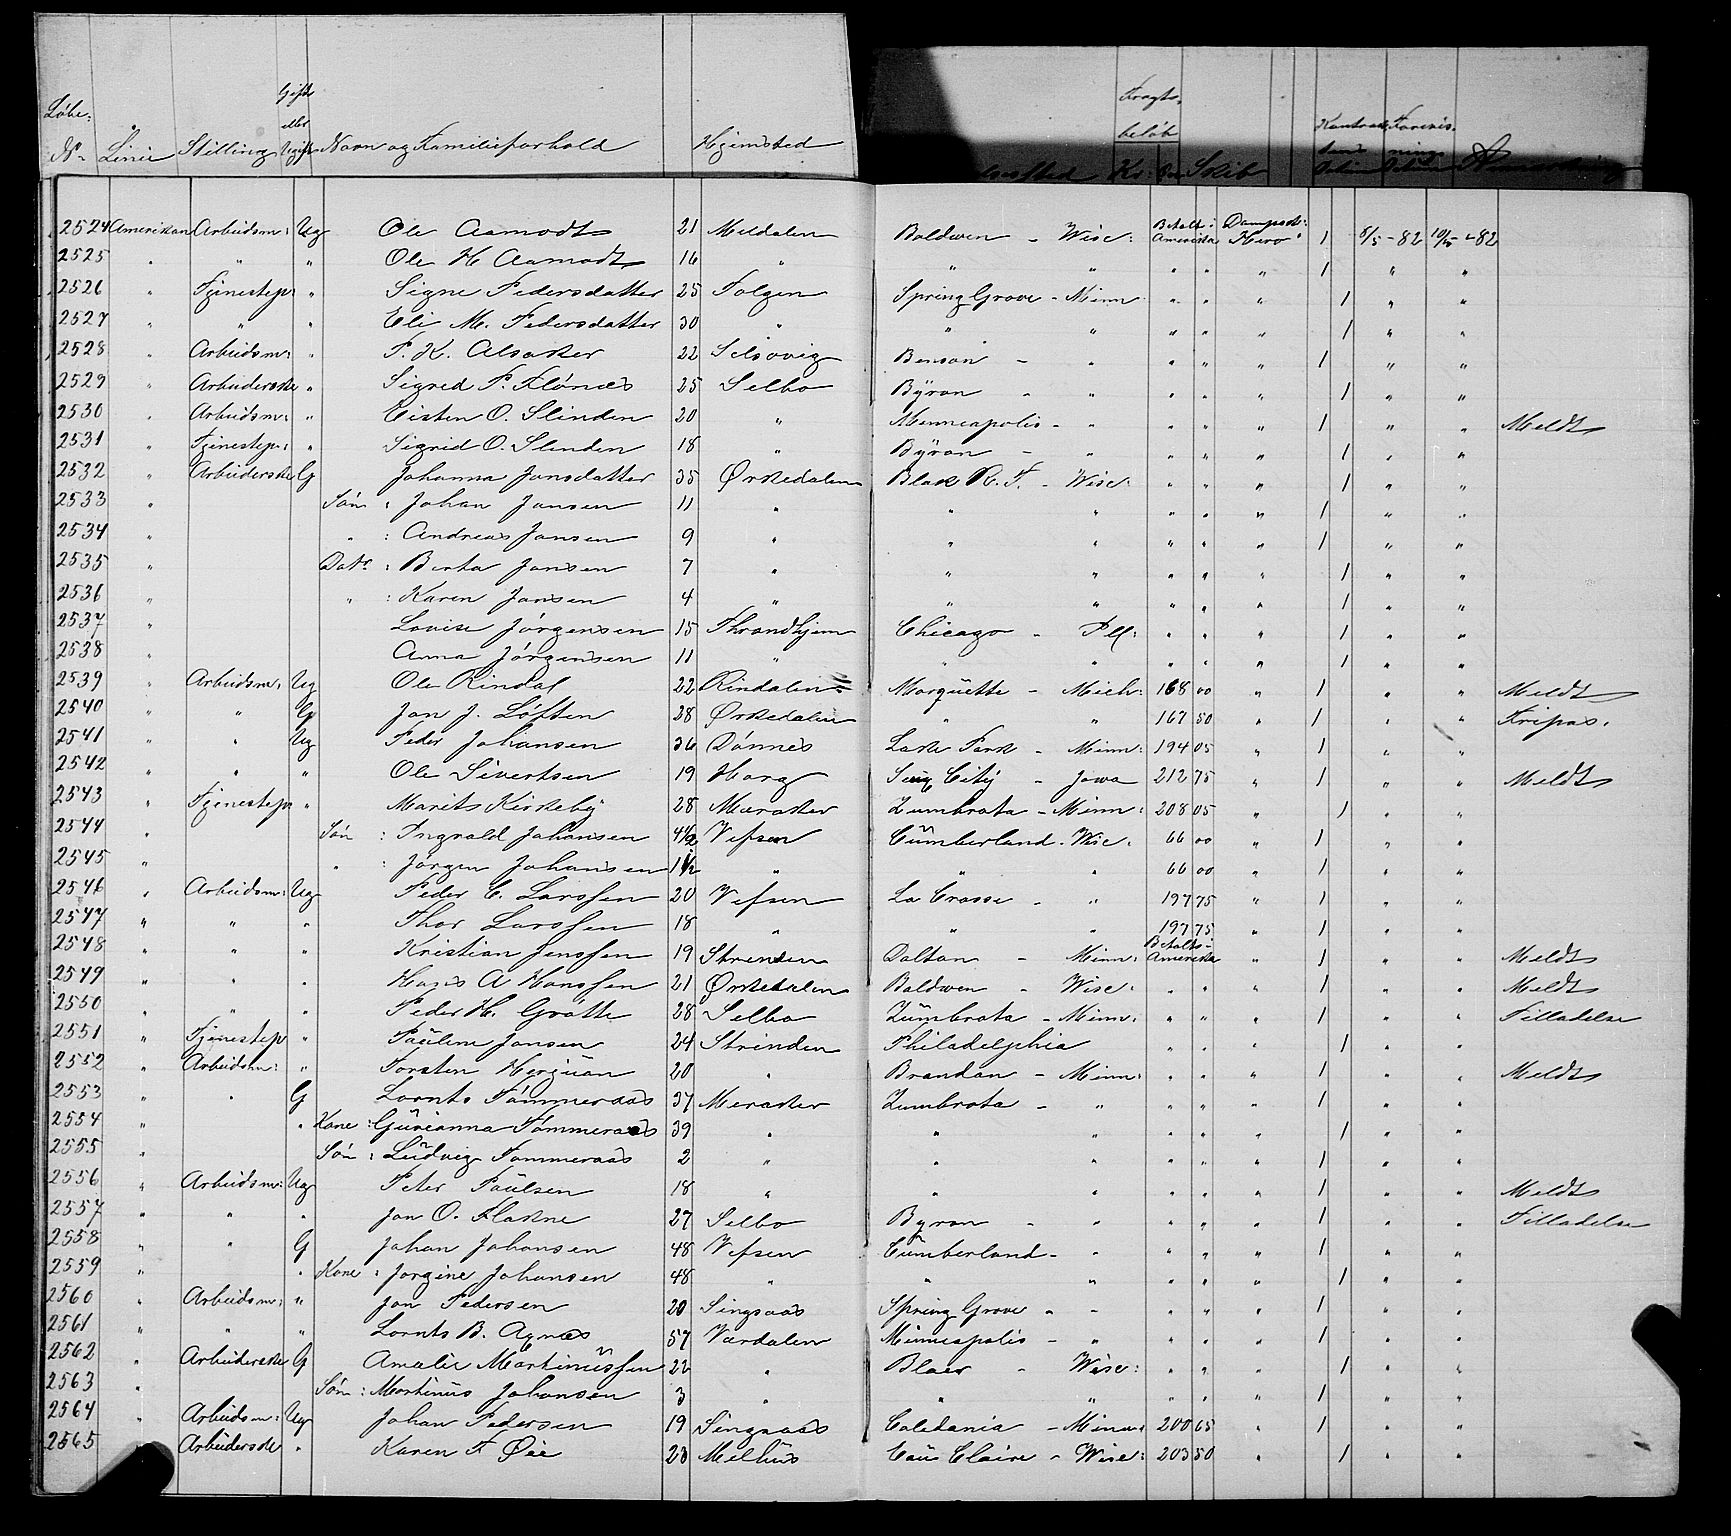 Løbe: No. Linie Stilling Gift eller Ugift Navn og Familieforhold Hjemsted Fragtbeløb Kr. Skib
2524 Amerikan Arbeidsm: Ug Ole Aamodt 21 Meldalen Baldwen - Wisc: Betalt i Amerika Dampsk: Hero 1 8/5-82 10/5-82
2525 " " " Ole H Aamodt 16 " " " " " " 1 " "
2526 " Tjenestep: " Signe Pedersdatter 25 Tolgen Spring Grove - Minn " " " 1 " "
2527 " " " Eli M. Pedersdatter 30 " " " " " " 1 " "
2528 " Arbeidsm: " P. K. Alsaker 22 Selsøvig Benson - " " " " 1 " "
2529 " Arbeiderske " Sigred P. Flönæs 25 Selbo Byron - " " " " 1 " "
2530 " Arbeidsm: " Eisten O. Slinden 20 " Minneapolis - " " " " 1 " " Meldt
2531 " Tjenestep: " Sigrid O. Slinden 18 " Byron - " " " " 1 " "
2532 " Arbeiderske G Johanna Jonsdatter 35 Ørkedalen Black R. F. - Wisc: " " " 1 " "
2533 " Søn: Johan Jonsen 11 " " " " " " 1 " "
2534 " " : Andreas Jonsen 9 " " " " " " 1 " "
2535 " Datr: Berta Jonsen 7 " " " " " " 1 " "
2536 " " : Karen Jonsen 4 " " " " " " 1 " "
2537 " Lovise Jörgensen 15 Throndhjem Chicago - Ill: " " " 1 " "
2538 " Anna Jörgensen 11 " " " " " " 1 " "
2539 " Arbeidsm: Ug Ole Rindal 22 Rindalen Marquette - Mich: 168 00 " 1 " " Meldt
2540 " " G Jon J. Løften 28 Ørkedalen " " 167 50 " 1 " " Fripas.
2541 " " Ug Peder Johansen 36 Dönnes Lake Park - Minn: 194 05 " 1 " "
2542 " " " Ole Sivertsen 19 Horg City - Jowa 212 75 " 1 " " Meldt
2543 " Tjenestep " Marit Kirkeby 28 Meraker Zumbrota - Minn: 208 05 " 1 " "
2544 " Søn: Ingvald Johansen 4½ Vefsen Cumberland - Wisc: 66 00 " 1 " "
2545 " " : Jörgen Johansen 1½ " " " 66 00 " 1 " "
2546 " Arbeidsm: Ug Peder C. Larssen 20 Vefsen La Crosse - " 197 75 " 1 " "
2547 " " " Thor Larssen 18 " " " 197 75 " 1 " "
2548 " " " Kristian Jenssen 19 Strinden Dalton - Minn: Betalt i Amerika " 1 " " Meldt
2549 " " " Hans A Hanssen 21 Ørkedalen Baldwen - Wisc: " " " 1 " " Meldt
2550 " " " Peder H. Grötte 28 Selbo Zumbrota - Minn: " " " 1 " " Tilladelse
2551 " Tjenestep " Pauline Jonsen 24 Strinden Philadelphia " " " 1 " "
2552 " Arbeidsm: " Torsten 20 " Brandon - Minn: " " " 1 " " Meldt
2553 " " G Lornts Tömmeraas 37 Meraker Zumbrota - " " " " 1 " "
2554 " " Kone: Gurianna Tömmeraas 39 " " " " " " 1 " "
2555 " Søn: Ludvig Tömmeraas 2 " " " " " " 1 " "
2556 " Arbeidsm: Ug Peter Paulsen 18 " " " " " " 1 " " Meldt
2557 " " " Jon O. Flakne 27 Selbo Byron - " " " " 1 " " Tilladelse
2558 " " G Johan Johansen 48 Vefsen Cumberland - " " " " 1 " "
2559 " " Kone: Jorgine Johansen 48 " " " " " " 1 " "
2560 " Arbeidsm: " Jon Pedersen 20 Singsaas Spring Grove " " " " " 1 " "
2561 " " " Lornts B. Agnæs 57 Værdalen Minneapolis - " " " " 1 " "
2562 " Arbeiderske G Amalie Martinussen 22 " Blair - Wisc: " " " 1 " "
2563 " Søn: Martinus Johansen 3 " " " " " " 1 " "
2564 " Arbeidsm: Ug Johan Pedersen 19 Singsaas Caledonia - Minn: 200 65 " 1 " "
2565 Arbeiderske " Karen F Øie 23 Melhus Eau Claire - Wisc: 203 50 " 1 " "